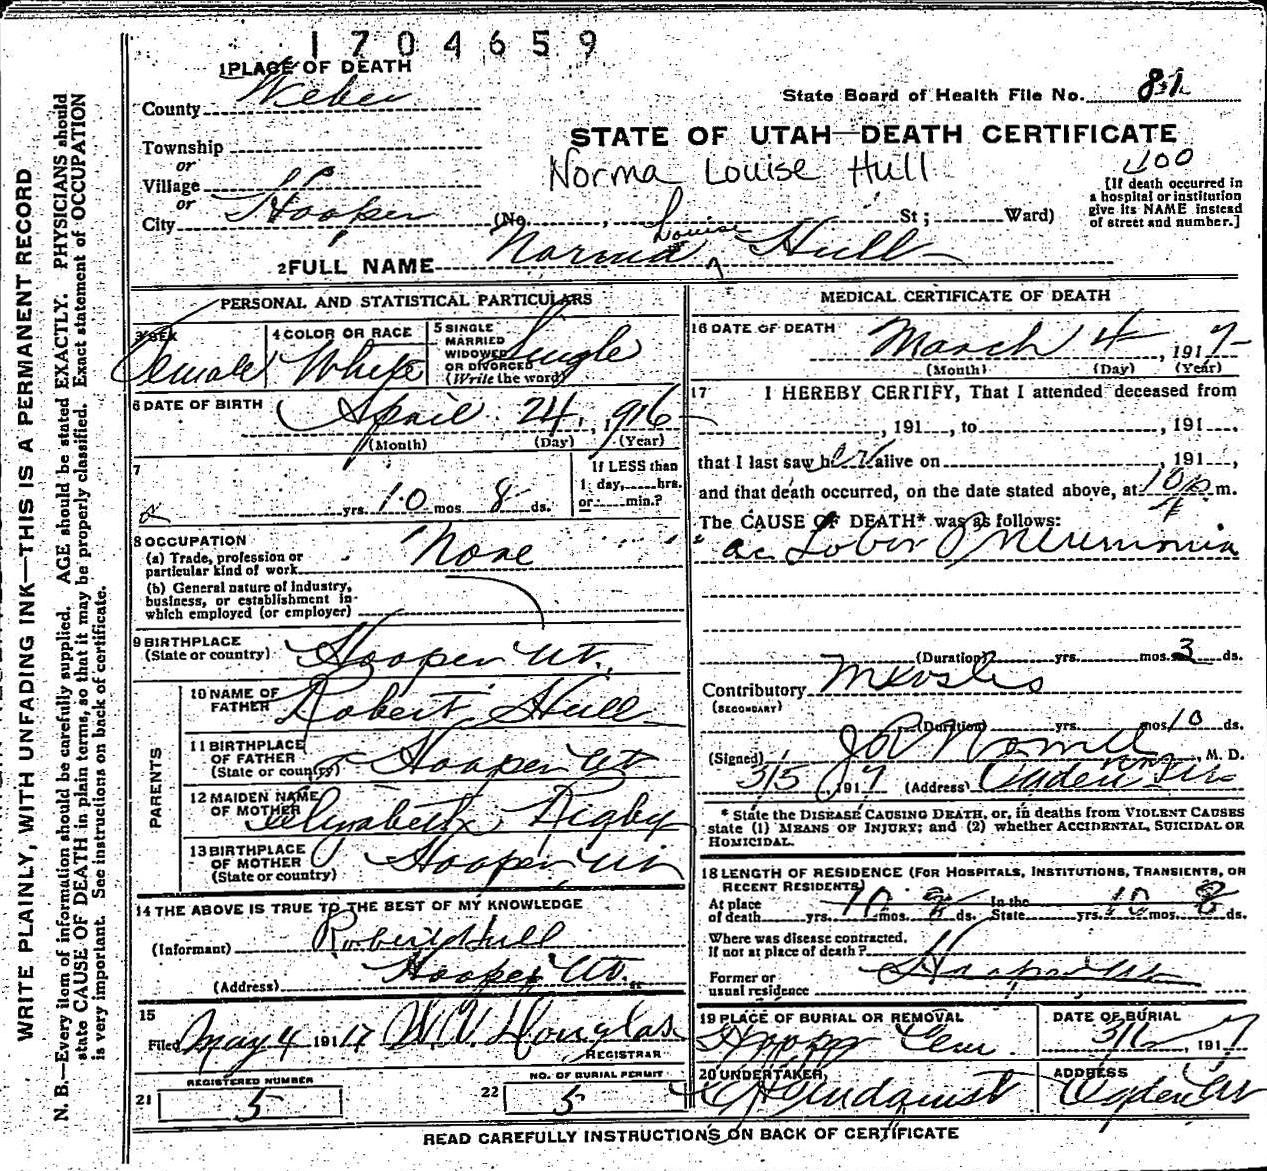 1704659
1 PLACE OF DEATH
County Weber
State Board of Health File No. 81
Township
STATE OF UTAH—DEATH CERTIFICATE
or
Village
Norma Louise Hull
100
or
City Hooper (No. , St ; Ward)
[If death occurred in
a hospital or institution
give its NAME instead
of street and number.]
Louise
2 FULL NAME Norma ^ Hull
PERSONAL AND STATISTICAL PARTICULARS
3 SEX Female
4 COLOR OR RACE White
5 SINGLE
MARRIED
WIDOWED
OR DIVORCED
(Write the word)
Single
6 DATE OF BIRTH April 24, 1916
(Month) (Day) (Year)
7
yrs. 10 mos. 8 ds.
If LESS than
1 day, hrs.
or min.?
8 OCCUPATION
(a) Trade, profession or
particular kind of work None
(b) General nature of industry,
business, or establishment in
which employed (or employer)
9 BIRTHPLACE
(State or country) Hooper Ut.
PARENTS
10 NAME OF
FATHER Robert Hull
11 BIRTHPLACE
OF FATHER
(State or country) Hooper Ut
12 MAIDEN NAME
OF MOTHER Elizabeth Rigby
13 BIRTHPLACE
OF MOTHER
(State or country) Hooper Ut
14 THE ABOVE IS TRUE TO THE BEST OF MY KNOWLEDGE
(Informant) Robert Hull
(Address) Hooper Ut.
15
Filed May 4 1917 W. V. Douglas
REGISTRAR
REGISTERED NUMBER
21 5
NO. OF BURIAL PERMIT
22 5
MEDICAL CERTIFICATE OF DEATH
16 DATE OF DEATH March 4, 1917
(Month) (Day) (Year)
17 I HEREBY CERTIFY, That I attended deceased from
, 191 , to , 191 .
that I last saw her alive on , 191 ,
and that death occurred, on the date stated above, at 10 p m.
The CAUSE OF DEATH* was as follows:
ac Lobar Pneumonia
(Duration) yrs. mos. 3 ds.
Contributory Measles
(SECONDARY)
(Duration) yrs. mos. 10 ds.
(Signed) , M. D.
3/5 1917 (Address) Ogden
* State the DISEASE CAUSING DEATH, or, in deaths from VIOLENT CAUSES
state (1) MEANS OF INJURY; and (2) whether ACCIDENTAL, SUICIDAL OR
HOMICIDAL.
18 LENGTH OF RESIDENCE (FOR HOSPITALS, INSTITUTIONS, TRANSIENTS, OR
RECENT RESIDENTS)
At place
of death yrs. 10 mos. 8 ds. In the State yrs. 10 mos. 8 ds.
Where was disease contracted,
if not at place of death?
Former or
usual residence Hooper Ut
19 PLACE OF BURIAL OR REMOVAL
Hooper Cem.
DATE OF BURIAL
, 1917
20 UNDERTAKER
Lindquist
ADDRESS
Ogden Ut
READ CAREFULLY INSTRUCTIONS ON BACK OF CERTIFICATE
WRITE PLAINLY, WITH UNFADING INK—THIS IS A PERMANENT RECORD
N. B.—Every item of information should be carefully supplied. AGE should be stated EXACTLY. PHYSICIANS should
state CAUSE OF DEATH in plain terms, so that it may be properly classified. Exact statement of OCCUPATION
is very important. See instructions on back of certificate.